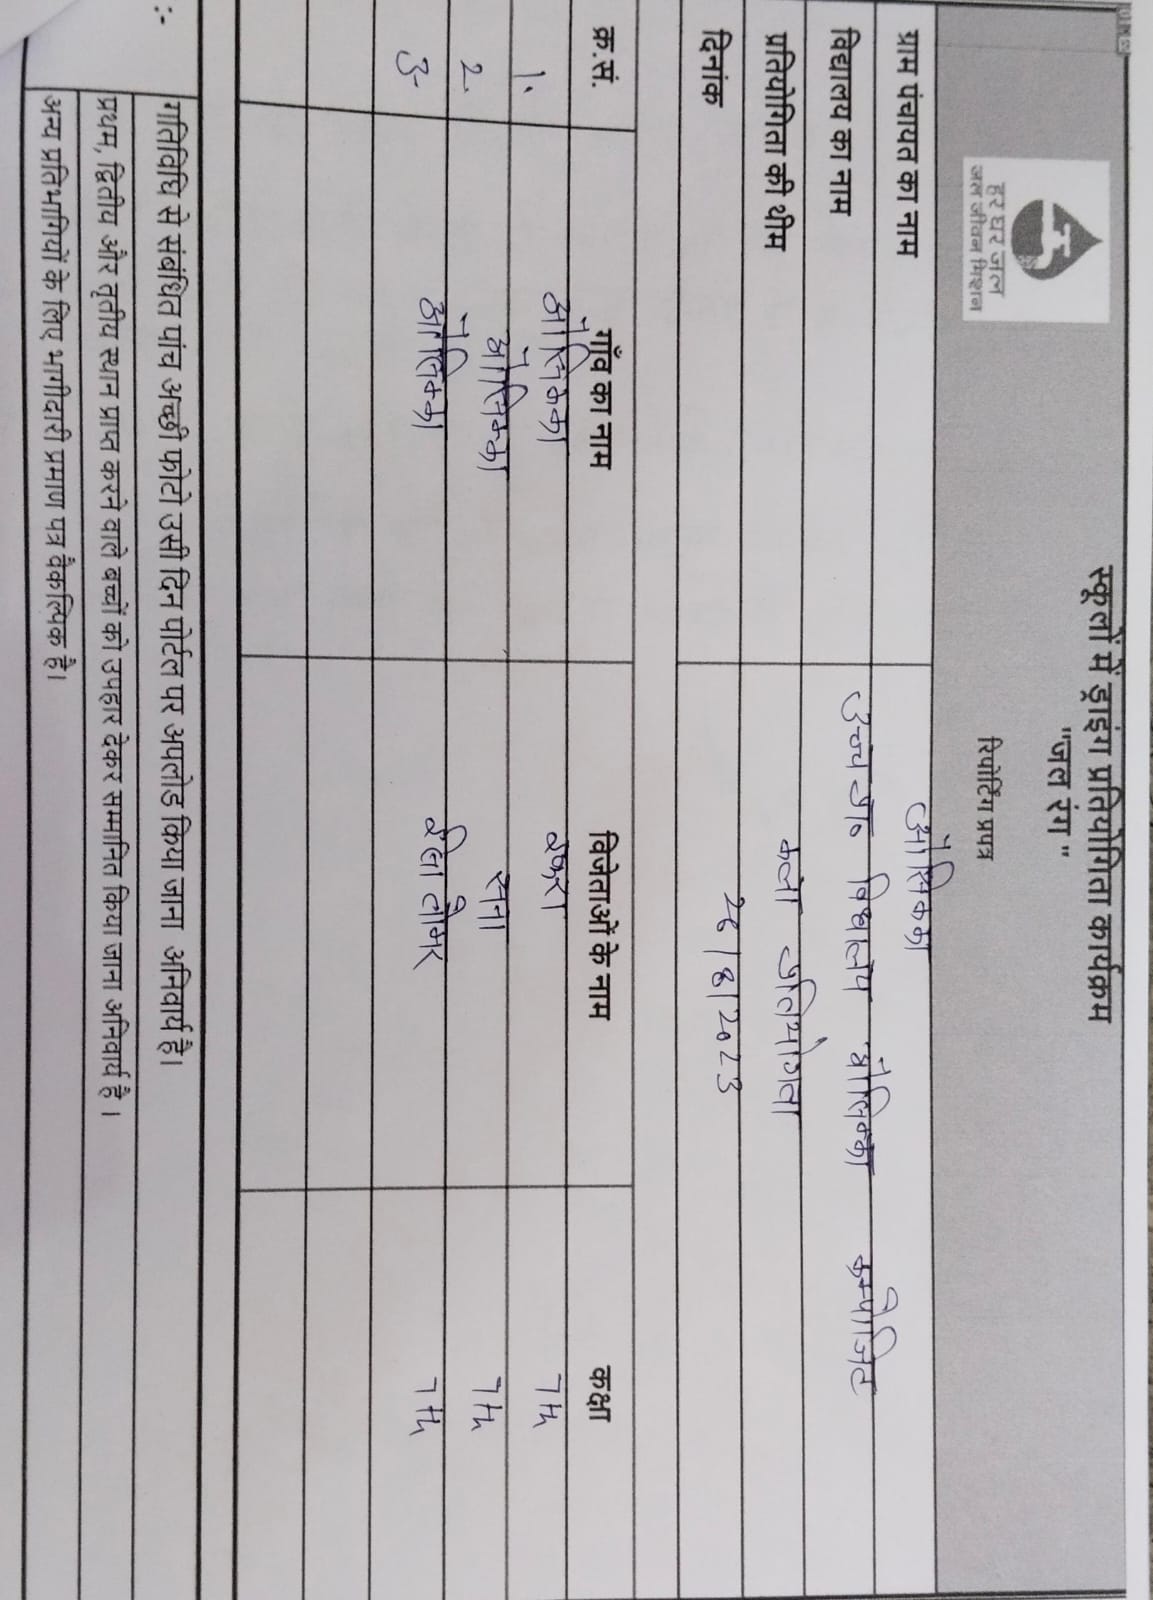 हर घर जल
जल जीवन मिशन
स्कूलों में ड्राइंग प्रतियोगिता कार्यक्रम
"जल रंग"
रिपोर्टिंग प्रपत्र
ग्राम पंचायत का नाम औसिक्का
विद्यालय का नाम उच्च प्रा० विद्यालय औसिक्का कम्पोजिट
प्रतियोगिता की थीम कला प्रतियोगिता
दिनांक 26/8/2023
क्र.सं. गाँव का नाम विजेताओं के नाम कक्षा
1. औसिक्का इकरा 7th
2. औसिक्का सना 7th
3- औसिक्का 7th
:- गतिविधि से संबंधित पांच अच्छी फोटो उसी दिन पोर्टल पर अपलोड किया जाना अनिवार्य है।
प्रथम, द्वितीय और तृतीय स्थान प्राप्त करने वाले बच्चों को उपहार देकर सम्मानित किया जाना अनिवार्य है।
अन्य प्रतिभागियों के लिए भागीदारी प्रमाण पत्र वैकल्पिक है।